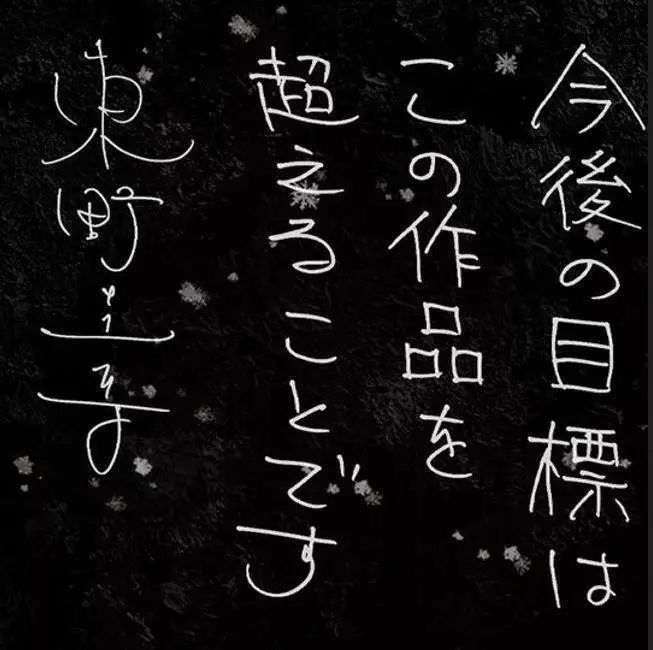 今後の目標は
この作品を
超えることです
東野圭吾